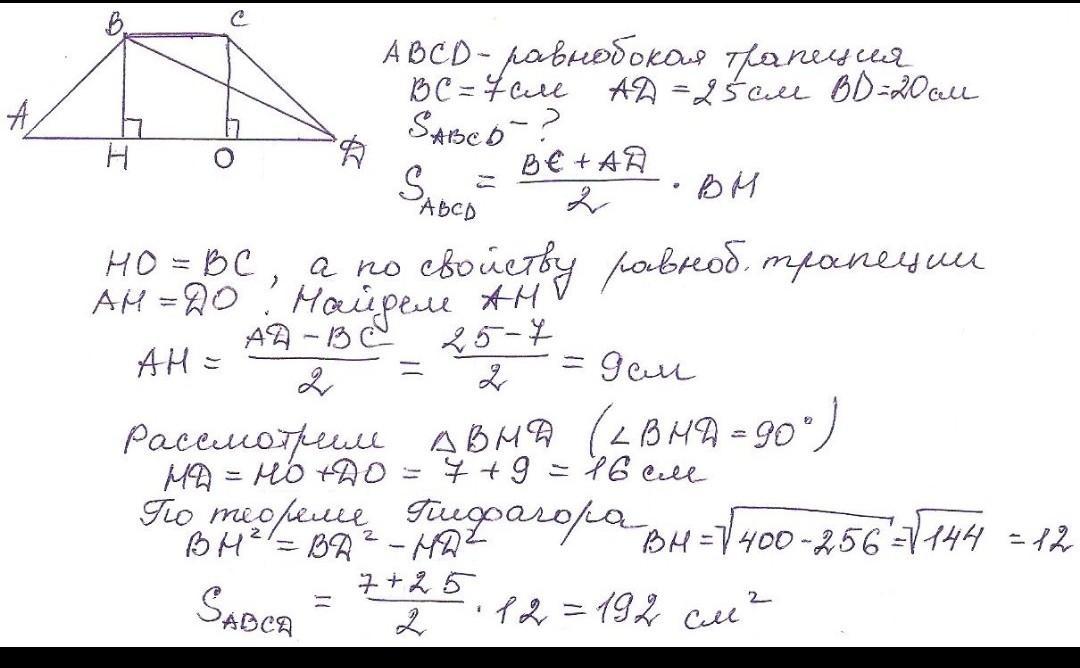 B C
A H O D
ABCD - равнобокая трапеция
BC = 7 см AD = 25 см BD = 20 см
S_ABCD - ?
S_ABCD = (BC + AD)/2 · BH
HO = BC, а по свойству равноб. трапеции
AH = DO. Найдем AH
AH = (AD - BC)/2 = (25 - 7)/2 = 9 см
Рассмотрим △BHD (∠BHD = 90°)
HD = HO + DO = 7 + 9 = 16 см
По теореме Пифагора
BH² = BD² - HD² BH = √(400 - 256) = √144 = 12
S_ABCD = (7 + 25)/2 · 12 = 192 см²